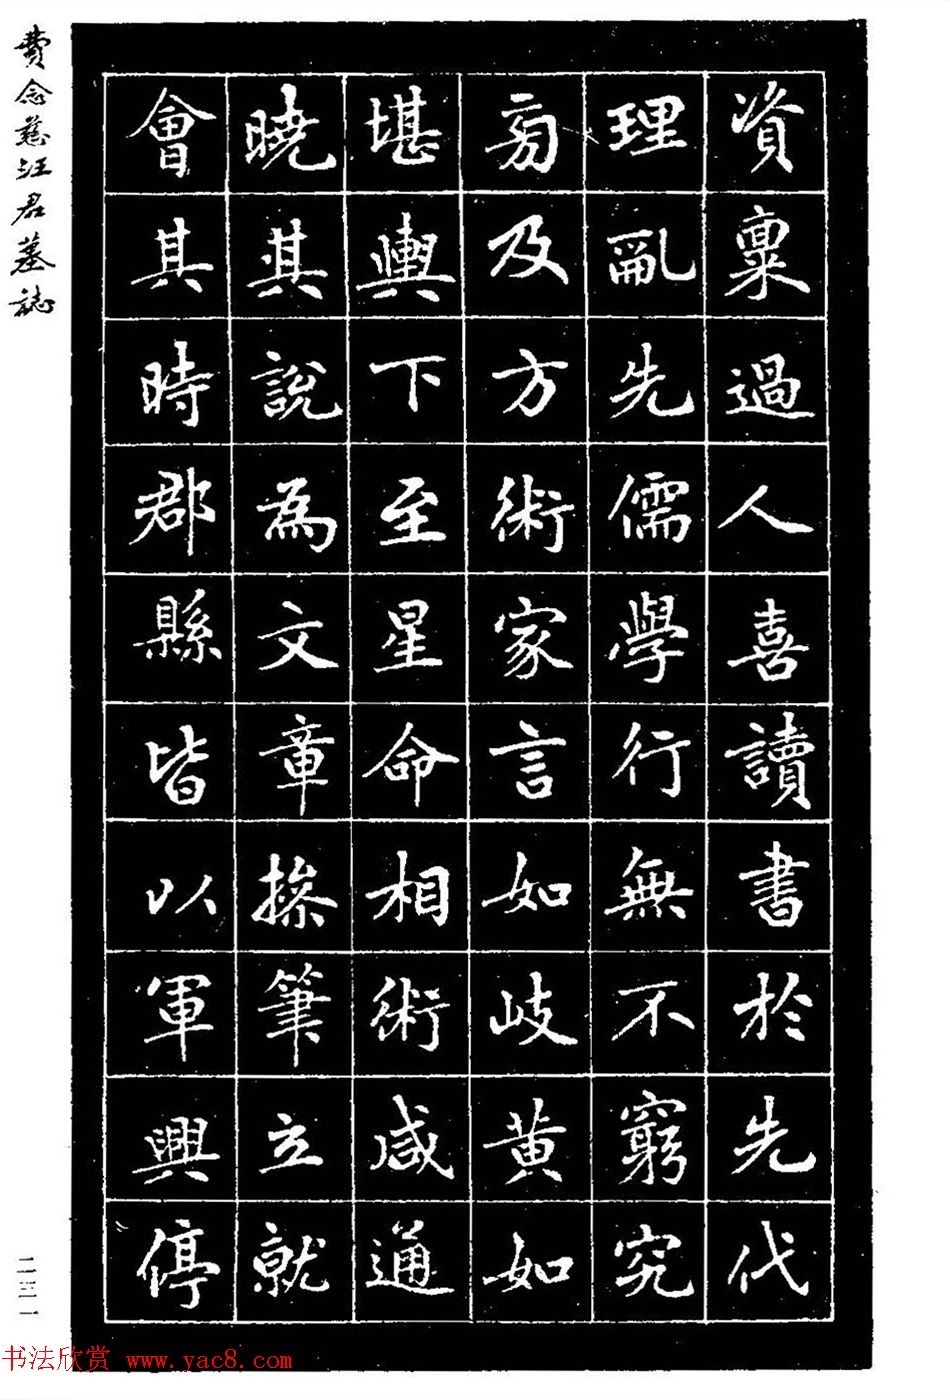 資稟過人喜讀書於先代
理亂先儒學行無不窮究
旁及方術家言如岐黃如
堪輿下至星命相術咸通
曉其說為文章操筆立就
會其時郡縣皆以軍興停
費念慈汪君墓誌
二三一
书法欣赏 www.yac8.com